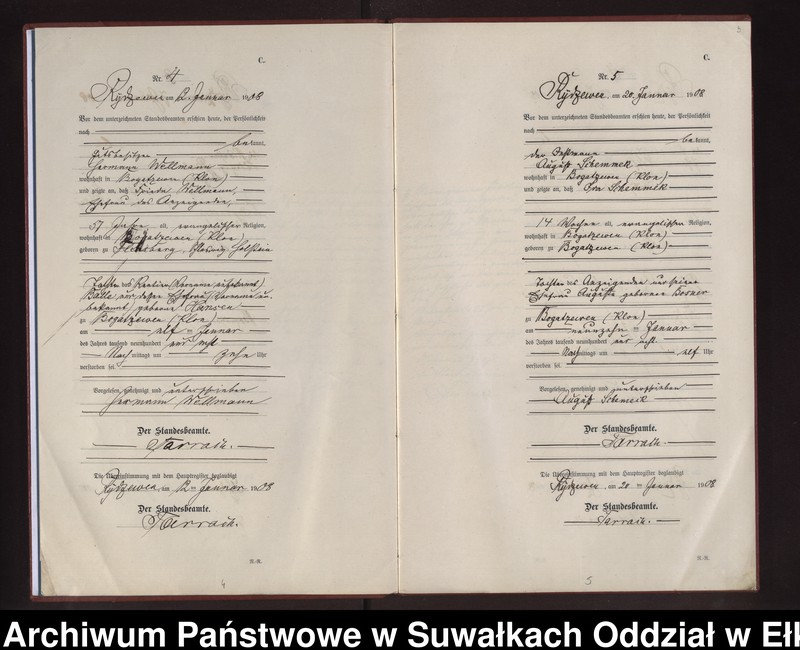 C.
Nr. 4
Rydzewen am 12. Januar 1908
Vor dem unterzeichneten Standesbeamten erschien heute, der Persönlichkeit
nach
bekannt,
Gutsbesitzer
Hermann Wellmann
wohnhaft in Bogatzewen (Klon)
und zeigte an, daß Frieda Wellmann,
Ehefrau des Anzeigenden,
57 Jahre alt, evangelischer Religion,
wohnhaft in Bogatzewen (Klon)
geboren zu Flensburg, Holstein
Tochter des Rentier (Vorname unbekannt)
Balle und dessen Ehefrau (Vorname un-
bekannt) geborene Hansen
zu Bogatzewen (Klon)
am elf ten Januar
des Jahres tausend neunhundert und acht
Nach mittags um zehn Uhr
verstorben sei.
Vorgelesen, genehmigt und unterschrieben
Hermann Wellmann
Der Standesbeamte.
Tarrach.
Die Übereinstimmung mit dem Hauptregister beglaubigt
Rydzewen, am 12 ten Januar 1908
Der Standesbeamte.
Tarrach.
N.-R.
4
C.
Nr. 5
Rydzewen, am 20. Januar 1908
Vor dem unterzeichneten Standesbeamten erschien heute, der Persönlichkeit
nach
bekannt,
der Instmann
August Schemmek
wohnhaft in Bogatzewen (Klon)
und zeigte an, daß Schemmek
14 Wochen alt, evangelischer Religion,
wohnhaft in Bogatzewen (Klon)
geboren zu Bogatzewen (Klon)
Tochter des Anzeigenden und seiner
Ehefrau Auguste geborenen Bosner
zu Bogatzewen (Klon)
am neunzehn ten Januar
des Jahres tausend neunhundert und acht
Nachmittags um elf Uhr
verstorben sei.
Vorgelesen, genehmigt und unterschrieben
August Schemeck
Der Standesbeamte.
Tarrach.
Die Übereinstimmung mit dem Hauptregister beglaubigt
Rydzewen, am 20 ten Januar 1908
Der Standesbeamte.
Tarrach.
N.-R.
5
Archiwum Państwowe w Suwałkach Oddział w Ełk